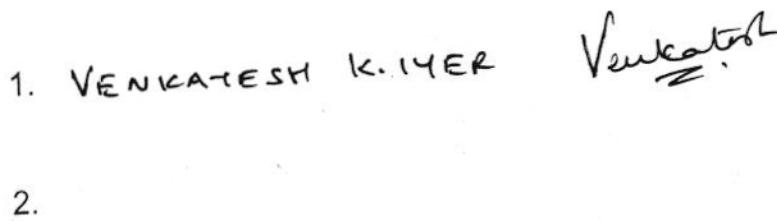 1. VENKATESH K. IYER Venkatesh
2.